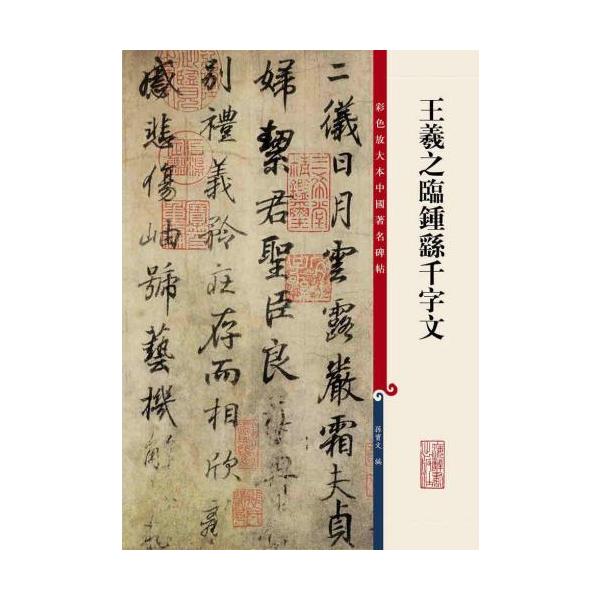 王羲之臨鍾繇千字文
彩色放大本中國著名碑帖
孫寶文 編
二儀日月雲露嚴霜夫貞
婦絜君聖臣良
別禮義矜莊存而相欣
感悲傷岫號藝機